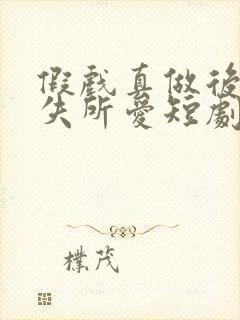 假戲真做後
失所愛短劇
樸茂